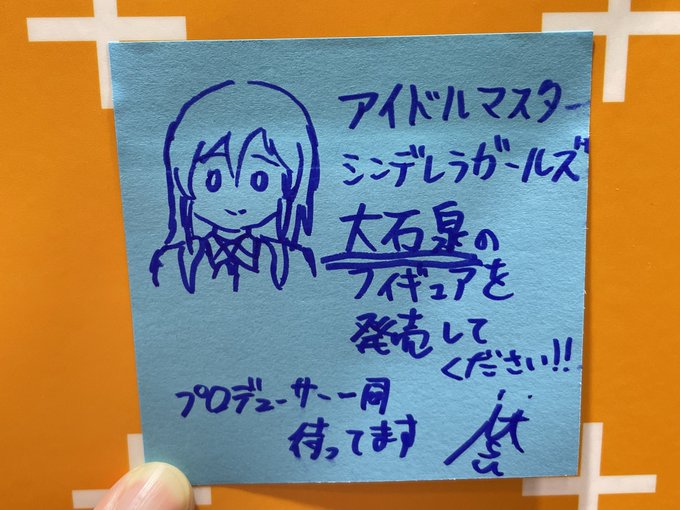 アイドルマスター
シンデレラガールズ
大石泉の
フィギュアを
発売して
ください!!
プロデューサー一同
待ってます